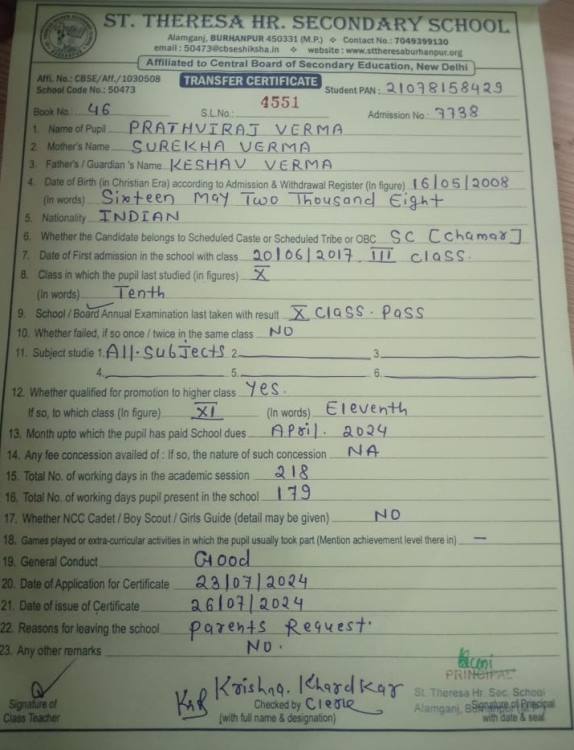 ST. THERESA HR. SECONDARY SCHOOL
Alamganj, BURHANPUR 450331 (M.P.) ❖ Contact No.: 7049399130
email : 50473@cbseshiksha.in ❖ website : www.sttheresaburhanpur.org
Affiliated to Central Board of Secondary Education, New Delhi
Affi. No.: CBSE/Aff./1030508
School Code No.: 50473
TRANSFER CERTIFICATE
Student PAN : 21078158429
Book No. 46 S.L.No.: 4551 Admission No : 7738
1. Name of Pupil PRATHVIRAJ VERMA
2. Mother's Name SUREKHA VERMA
3. Father's / Guardian 's Name KESHAV VERMA
4. Date of Birth (in Christian Era) according to Admission & Withdrawal Register (In figure) 16/05/2008
(In words) Sixteen May Two Thousand Eight
5. Nationality INDIAN
6. Whether the Candidate belongs to Scheduled Caste or Scheduled Tribe or OBC SC [Chamar]
7. Date of First admission in the school with class 20/06/2017 III class.
8. Class in which the pupil last studied (in figures) X
(In words) Tenth
9. School / Board Annual Examination last taken with result X Class. Pass
10. Whether failed, if so once / twice in the same class NO
11. Subject studie 1. All-Subjects 2. 3.
4. 5. 6.
12. Whether qualified for promotion to higher class Yes.
If so, to which class (In figure) XI (In words) Eleventh
13. Month upto which the pupil has paid School dues April. 2024
14. Any fee concession availed of : If so, the nature of such concession NA
15. Total No. of working days in the academic session 218
16. Total No. of working days pupil present in the school 179
17. Whether NCC Cadet / Boy Scout / Girls Guide (detail may be given) NO
18. Games played or extra-curricular activities in which the pupil usually took part (Mention achievement level there in) —
19. General Conduct Good
20. Date of Application for Certificate 23/07/2024
21. Date of issue of Certificate 26/07/2024
22. Reasons for leaving the school Parents Request.
23. Any other remarks No.
PRINCIPAL
St. Theresa Hr. Sec. School
Alamganj,
Signature of
Class Teacher
Krishna. Khardkar
Checked by Clerk
(with full name & designation)
Signature of Principal
with date & seal